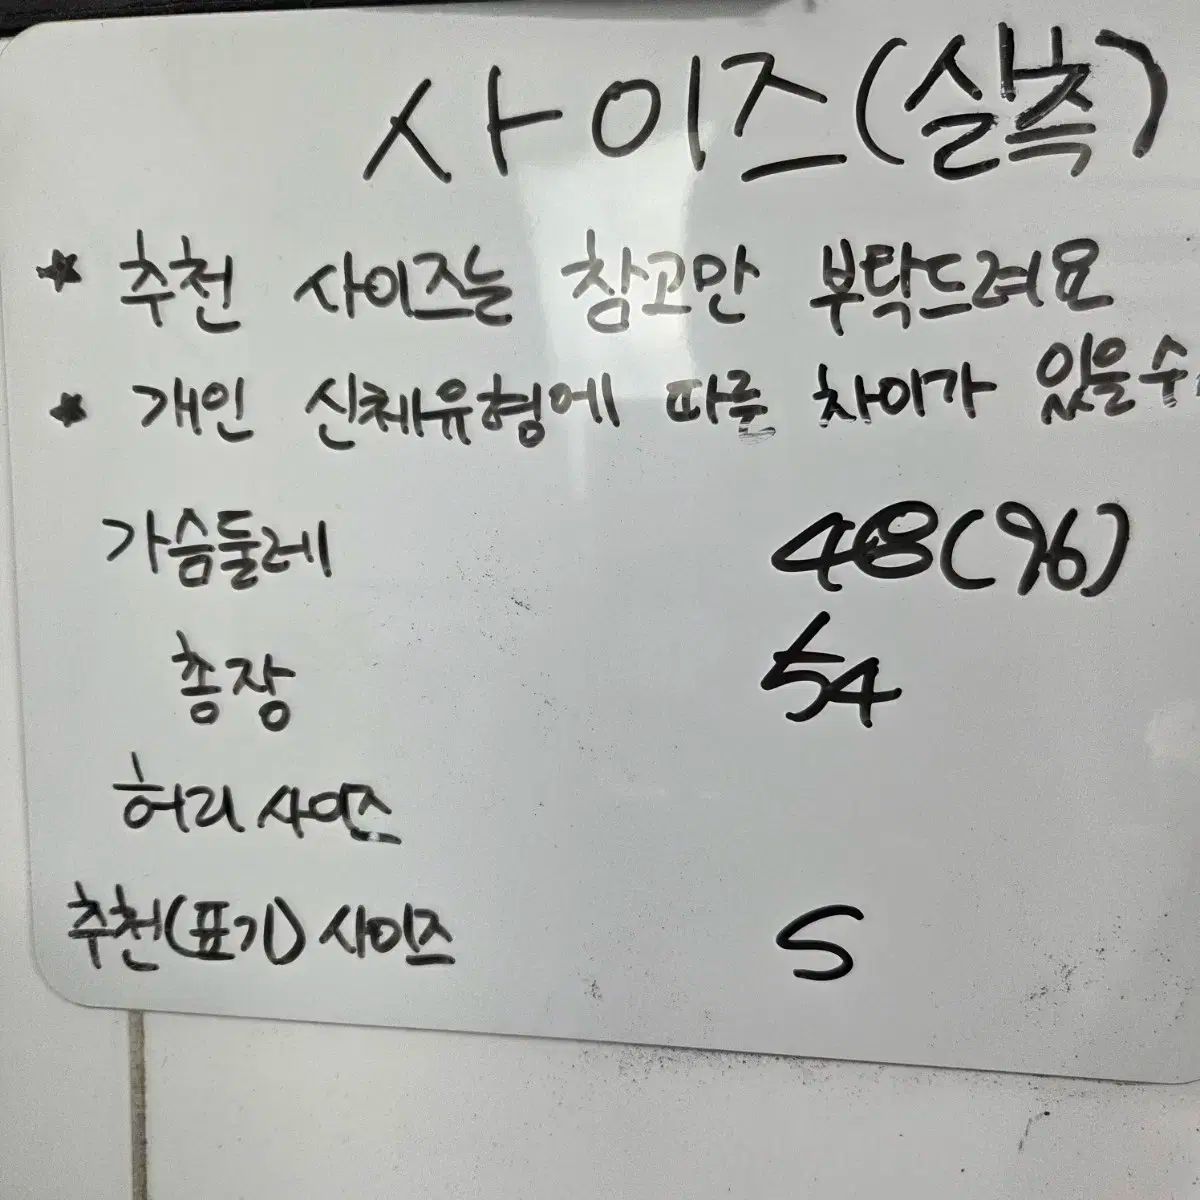 사이즈(실측)
* 추천 사이즈는 참고만 부탁드려요
* 개인 신체유형에 따른 차이가 있을수
가슴둘레 48(96)
총장 54
허리 사이즈
추천(표기) 사이즈 S